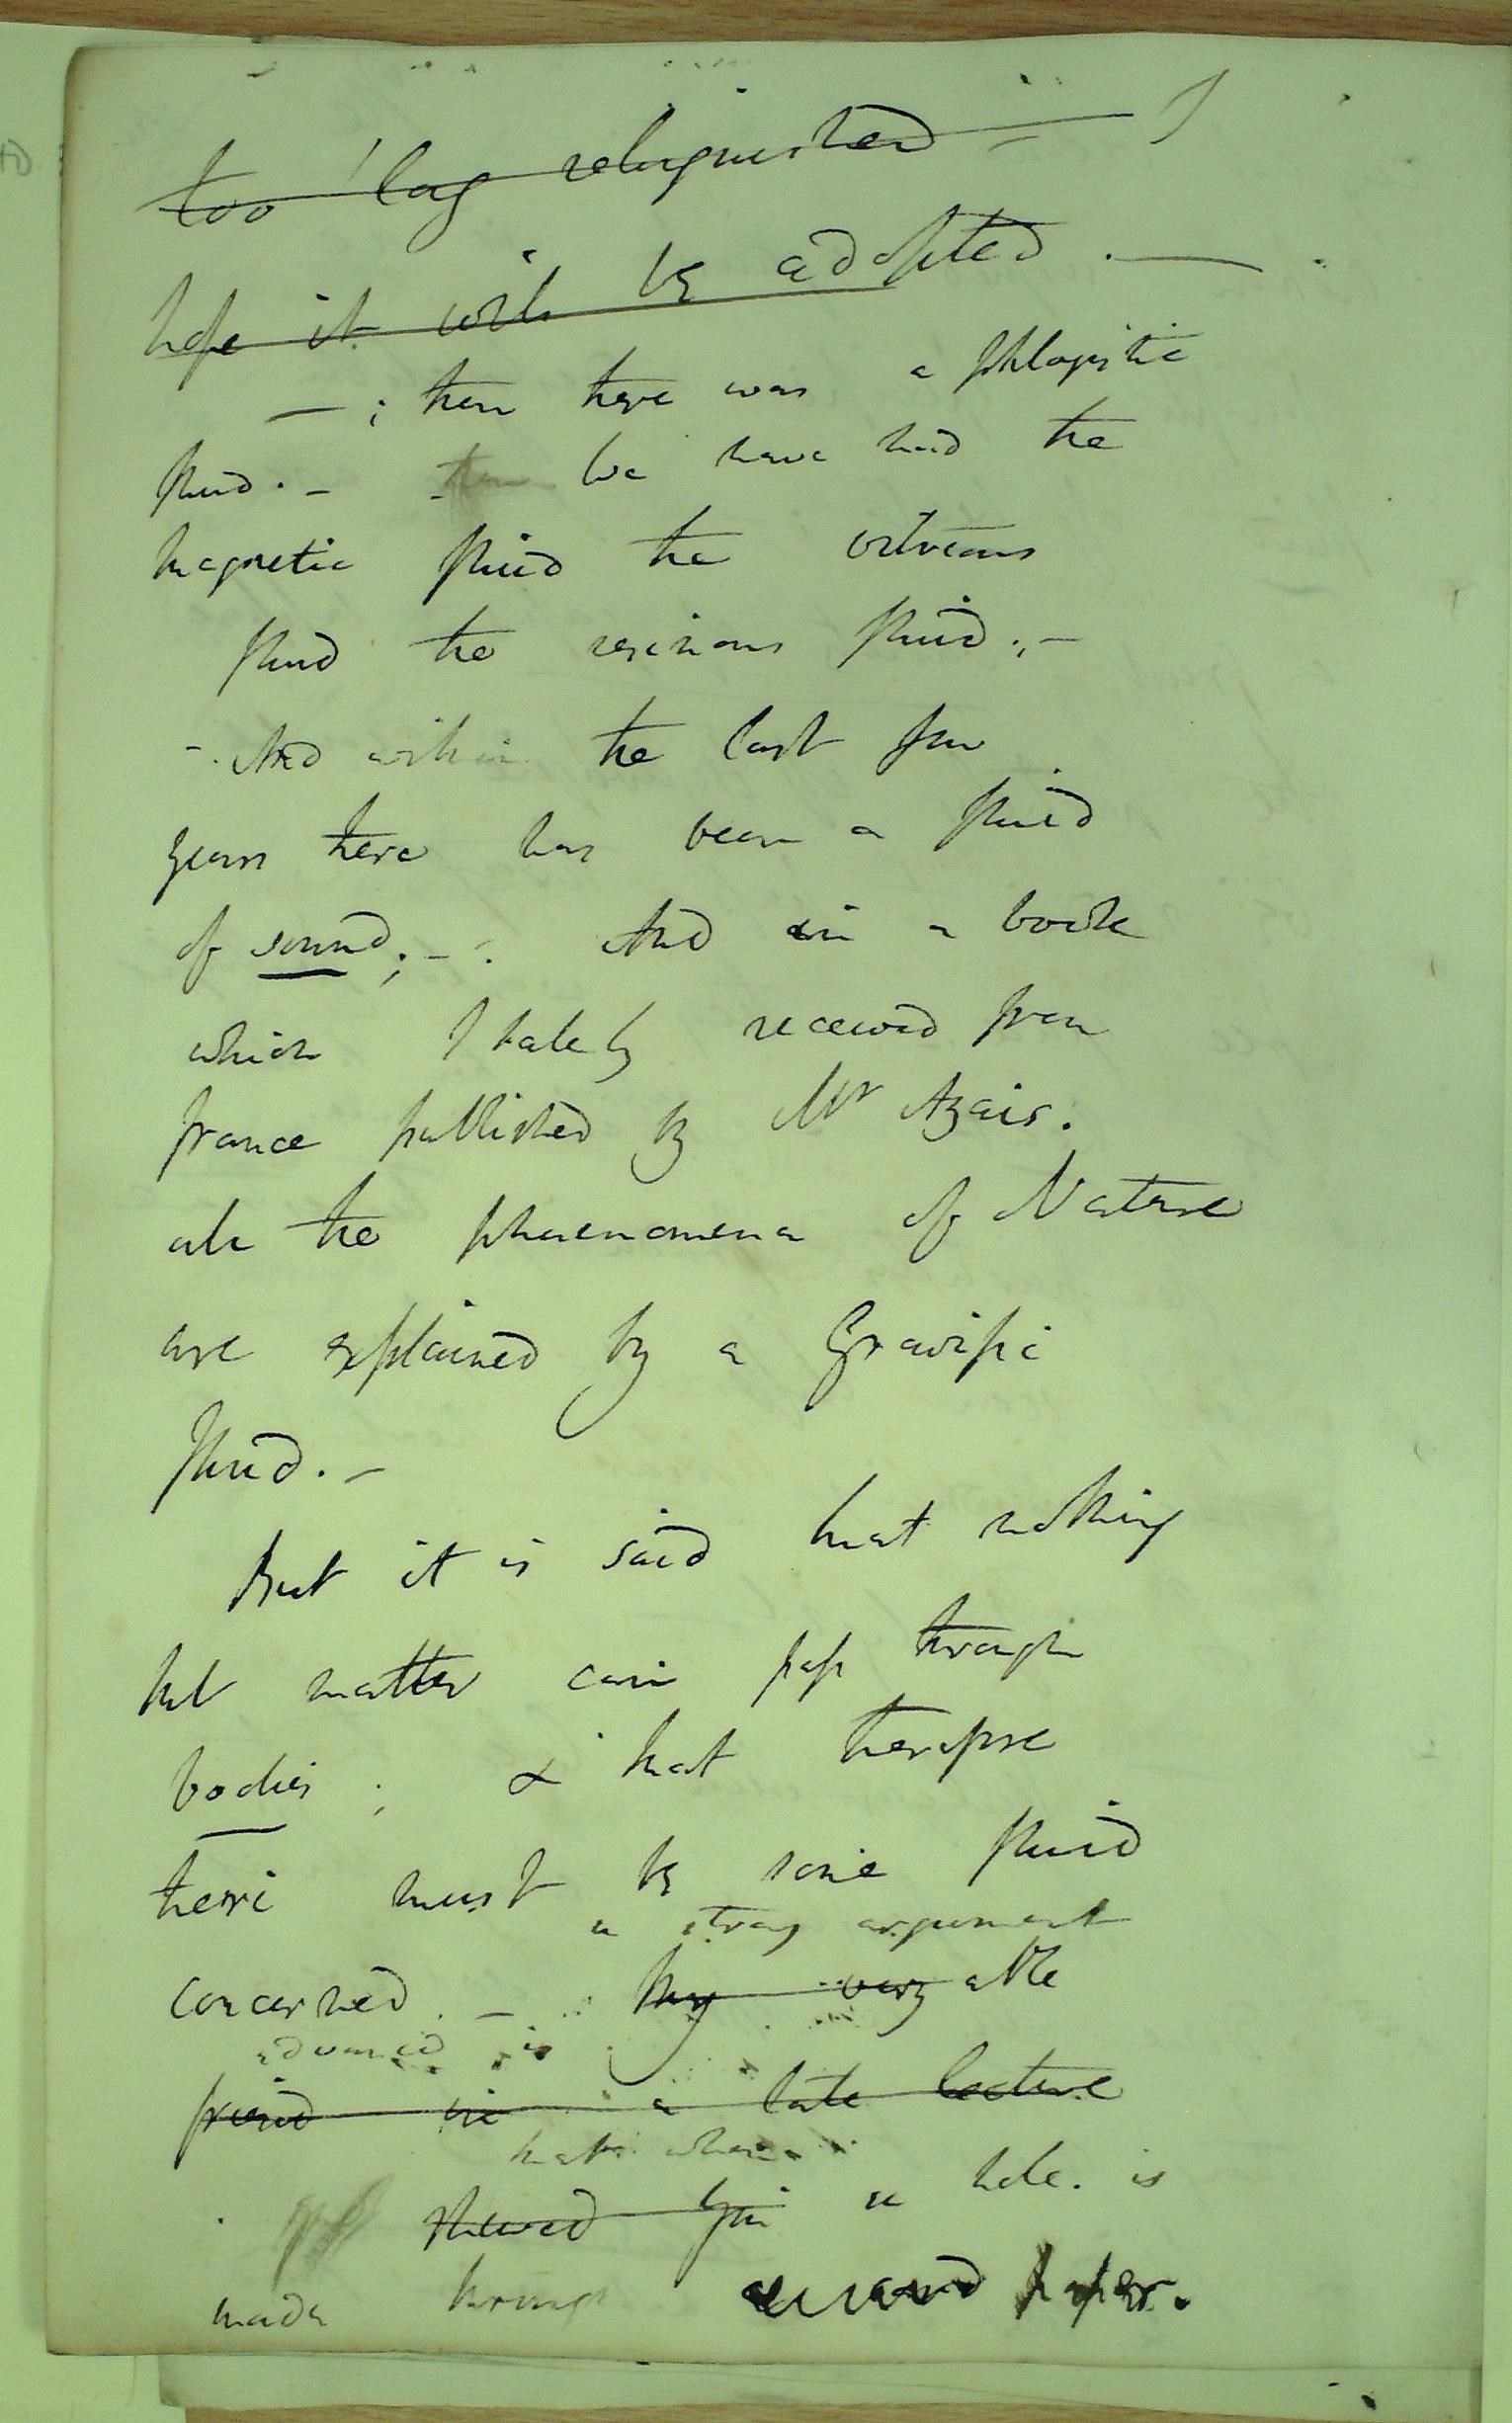 too long relinquished – I
hope it will be adopted. —
— ; then there was a phlogistic
fluid. – then We have had the
magnetic fluid the vitreous
fluid the resinous fluid; –
- And within the last few
years there has been a fluid
of sound; - . And in a book
which I lately received from
france published by Mr Azais.
all the phaenomena of Nature
are explained by a Gravific
fluid. –
But it is said that nothing
but matter can pass through
bodies ; & that therefore
there must be some fluid
a strong argument
concerned. – My very able
advanced is
friend in a late lecture
that when
shewed you a hole. is
made through card paper.